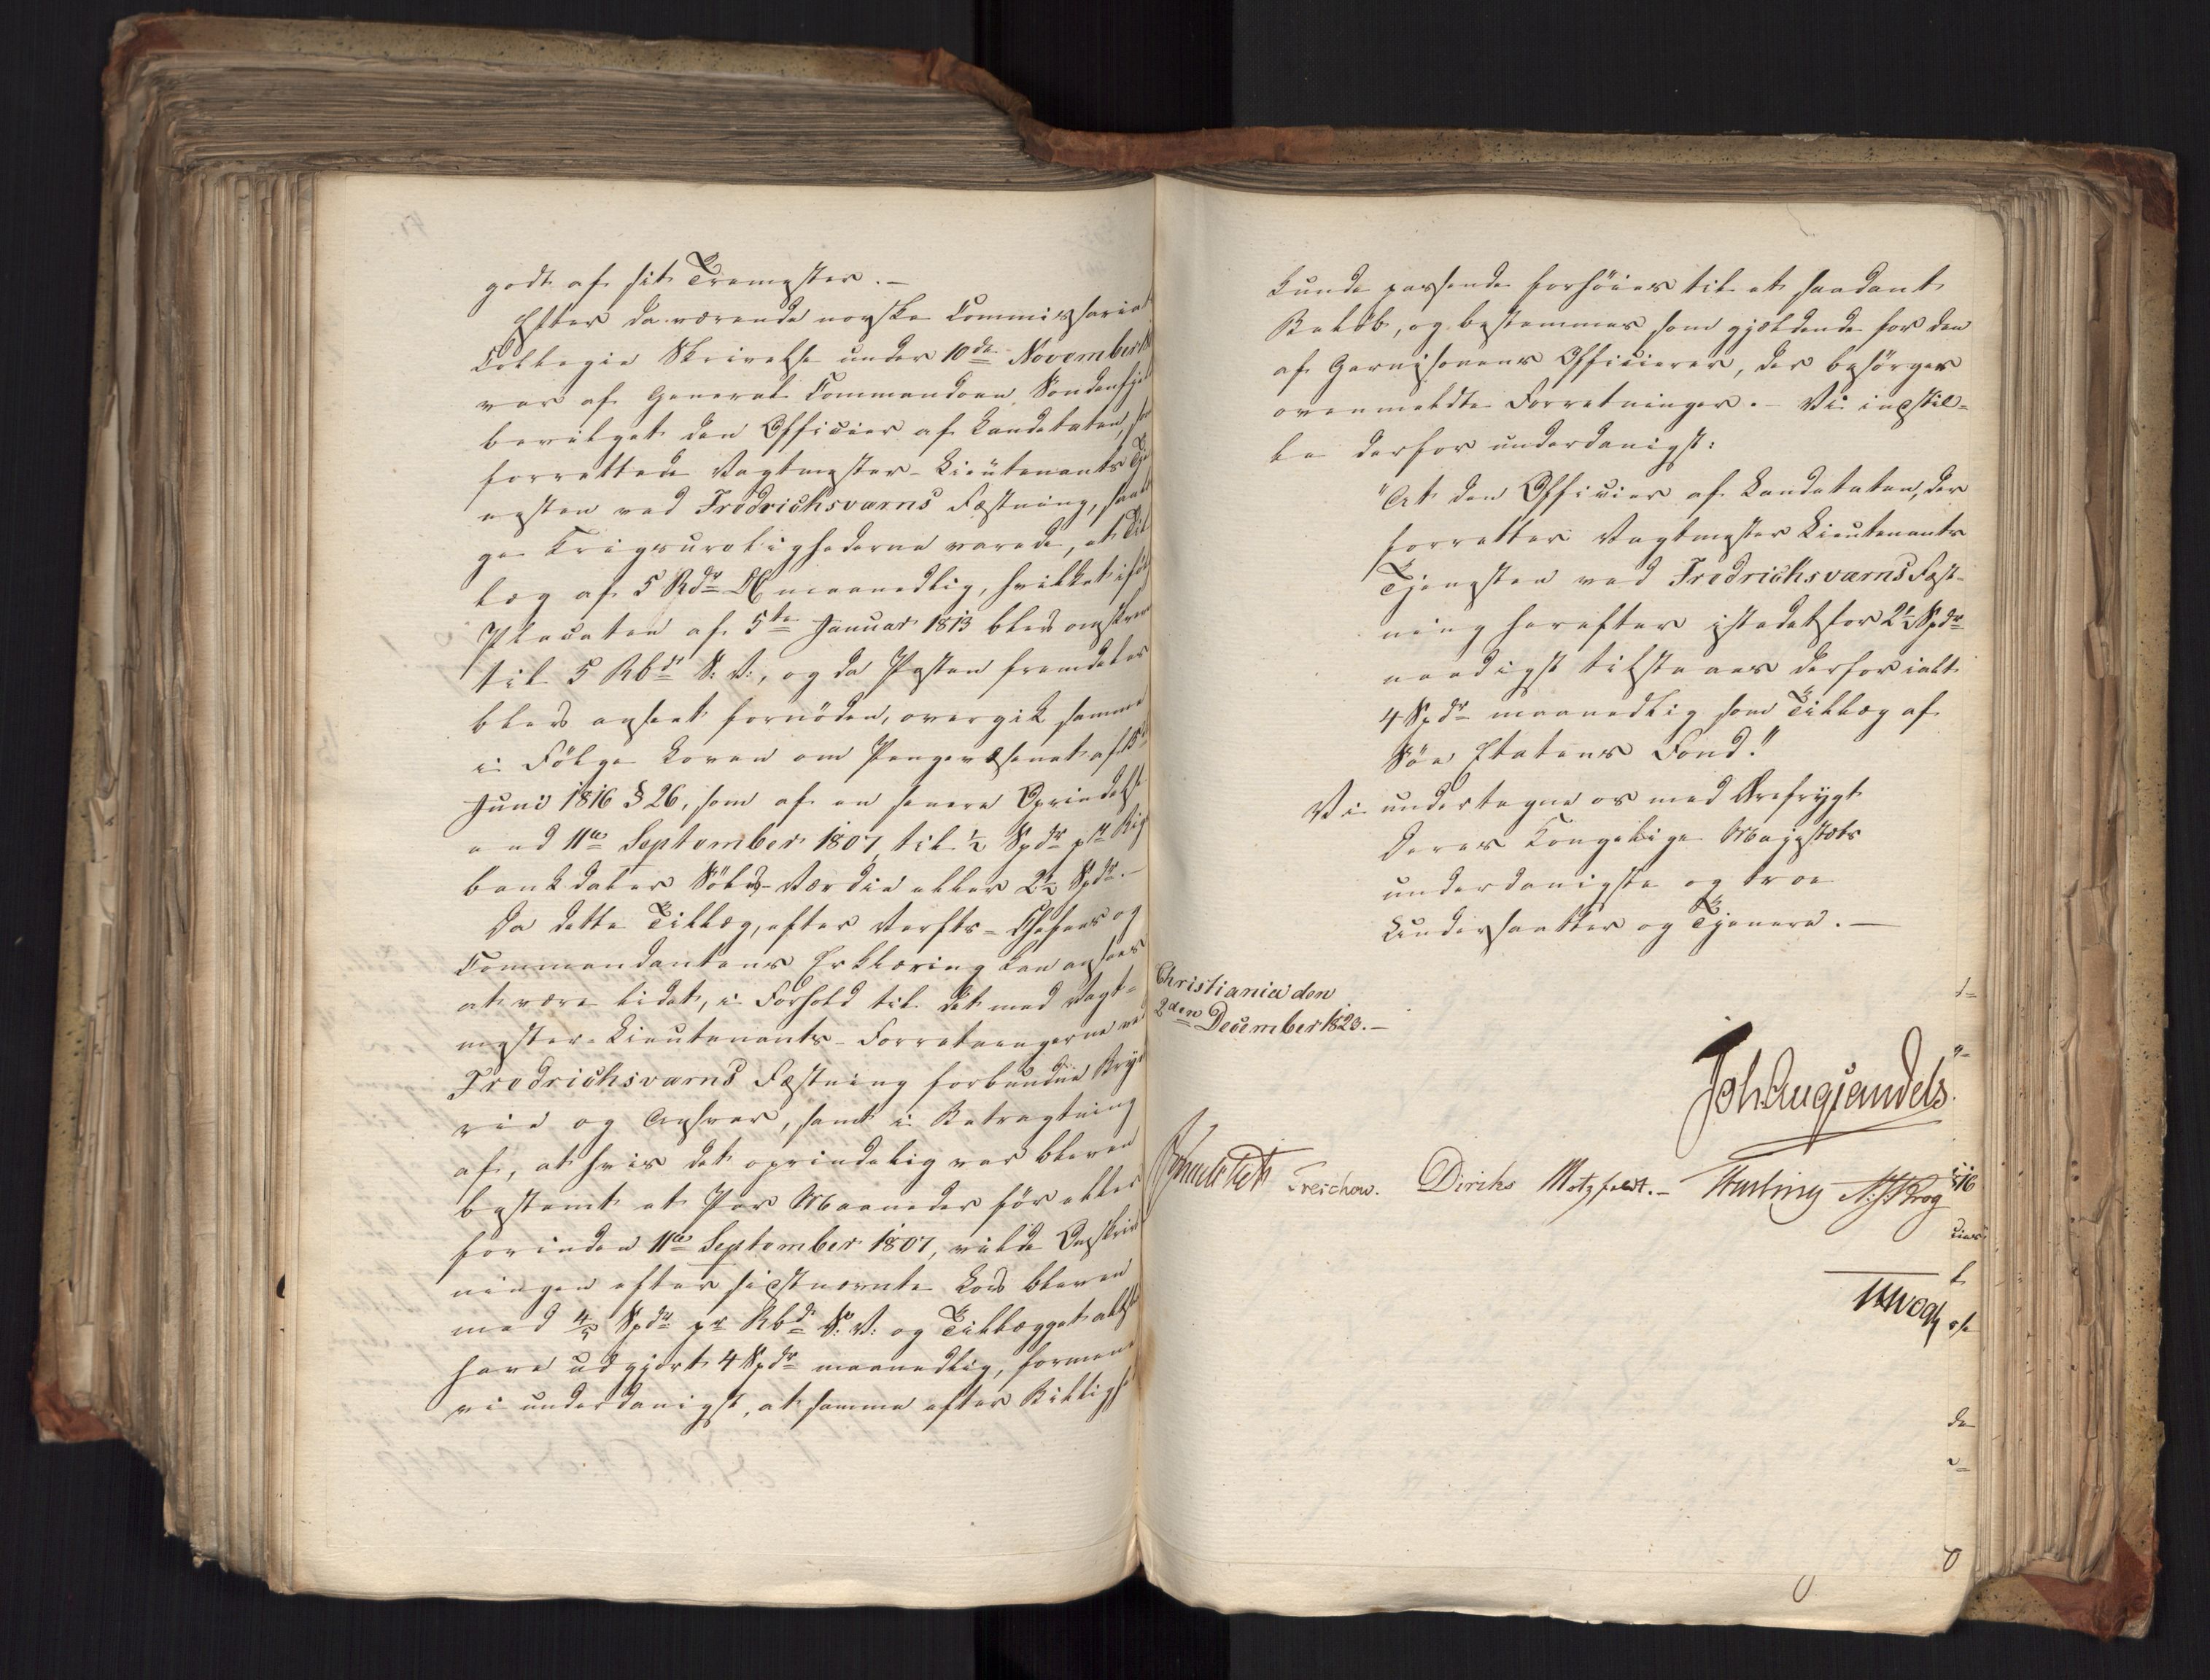 godt af sit Tremester. –
Efter daværende norske Commissariat
Collegie Skrivelse under 10de November
var af General Commandoen Søndenfje
bevilget den Officier af Landetaten, som
forrettede Vagtmester-Lieutenants Tje
nesten ved Fredrichsværns Fæstning, saal
ge Krigsurolighederne varede, et Til
læg af 5 Rdr DC maanedlig, hvilket iføl
Placaten af 5te Januar 1813 blev omskreve
til 5 Rbdr S: V:, og da Posten fremdeles
blev anseet fornöden, overgik samme
i Fölge Loven om Pengevæsenet af 13de
Juni 1816 § 26, som af en senere Oprindelse
end 11te September 1807, til ½ Spdr pr Rigs
bankdaler Sölv-Værdie eller 2½ Spdr. –
Da dette Tillæg, efter Verfts-Chefens og
Commandantens Erklæring kan ansees
at være lidet, i Forhold til det med Vagt-
mester-Lieutenants-Forretningerne ved
Fredrichsværns Fæstning forbundne Bryd
rie og Ansvar, samt i Betragtning
af, at hvis det oprindelig var bleven
bestemt et Par Maaneder för eller
forinden 11te September 1807, vilde Omskriv
ningen efter sidstnævnte Lov bleven
med 4/5 Spdr pr Rbdr S: V: og Tillægget altsaa
have udgjort 4 Spdr maanedlig, formene
vi underdanigst, at samme efter Billighed
kunde passende forhöies til et saadant
Belöb, og bestemmes som gjældende for den
af Garnisonens Officierer, der besörger
ovenmeldte Forretninger. – Vi indstil-
le derfor underdanigst:
"At den Officier af Landetaten, der
forretter Vagtmester Lieutenants
Tjenesten ved Fredrichsværns Fæst-
ning herefter istedetfor 2½ Spdr
naadigst tilstaaes derfor ialt
4 Spdr maanedlig som Tillæg af
Söe Etatens Fond."
Vi undertegne os med Ærefrygt
Deres Kongelige Majestæts
underdanigste og troe
Undersaatter og Tjenere. –
Christiania den
2den December 1823. –
Joh. Aug Sandels.
Treschow. Diriks Motzfeldt. – N: J: Krog